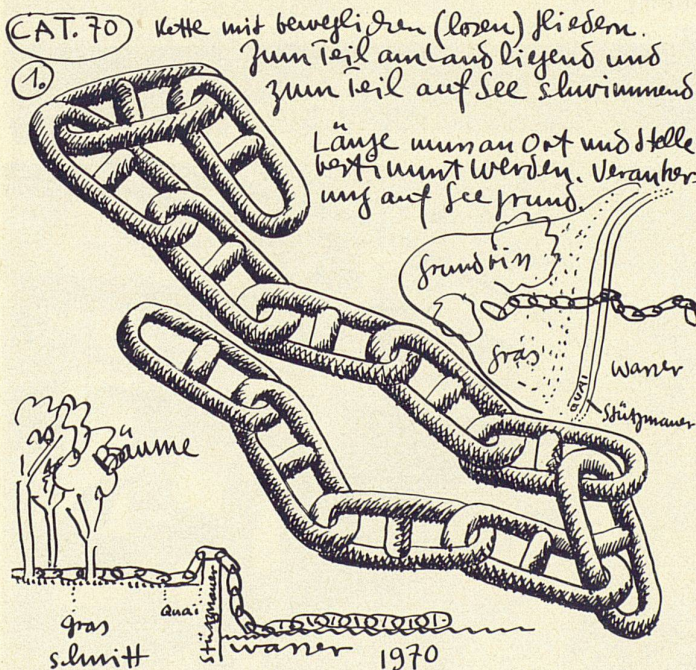 CAT. 70 Kette mit beweglichen (losen) Gliedern.
1. Zum Teil am Land liegend und
zum Teil auf See schwimmend
Länge muss an Ort und Stelle
bestimmt werden. Veranker-
ung auf Seegrund.
Grundriss
Gras
Wasser
QUAI
Stützmauer
Bäume
Gras
Quai
Stützmauer
Wasser
Schnitt
1970